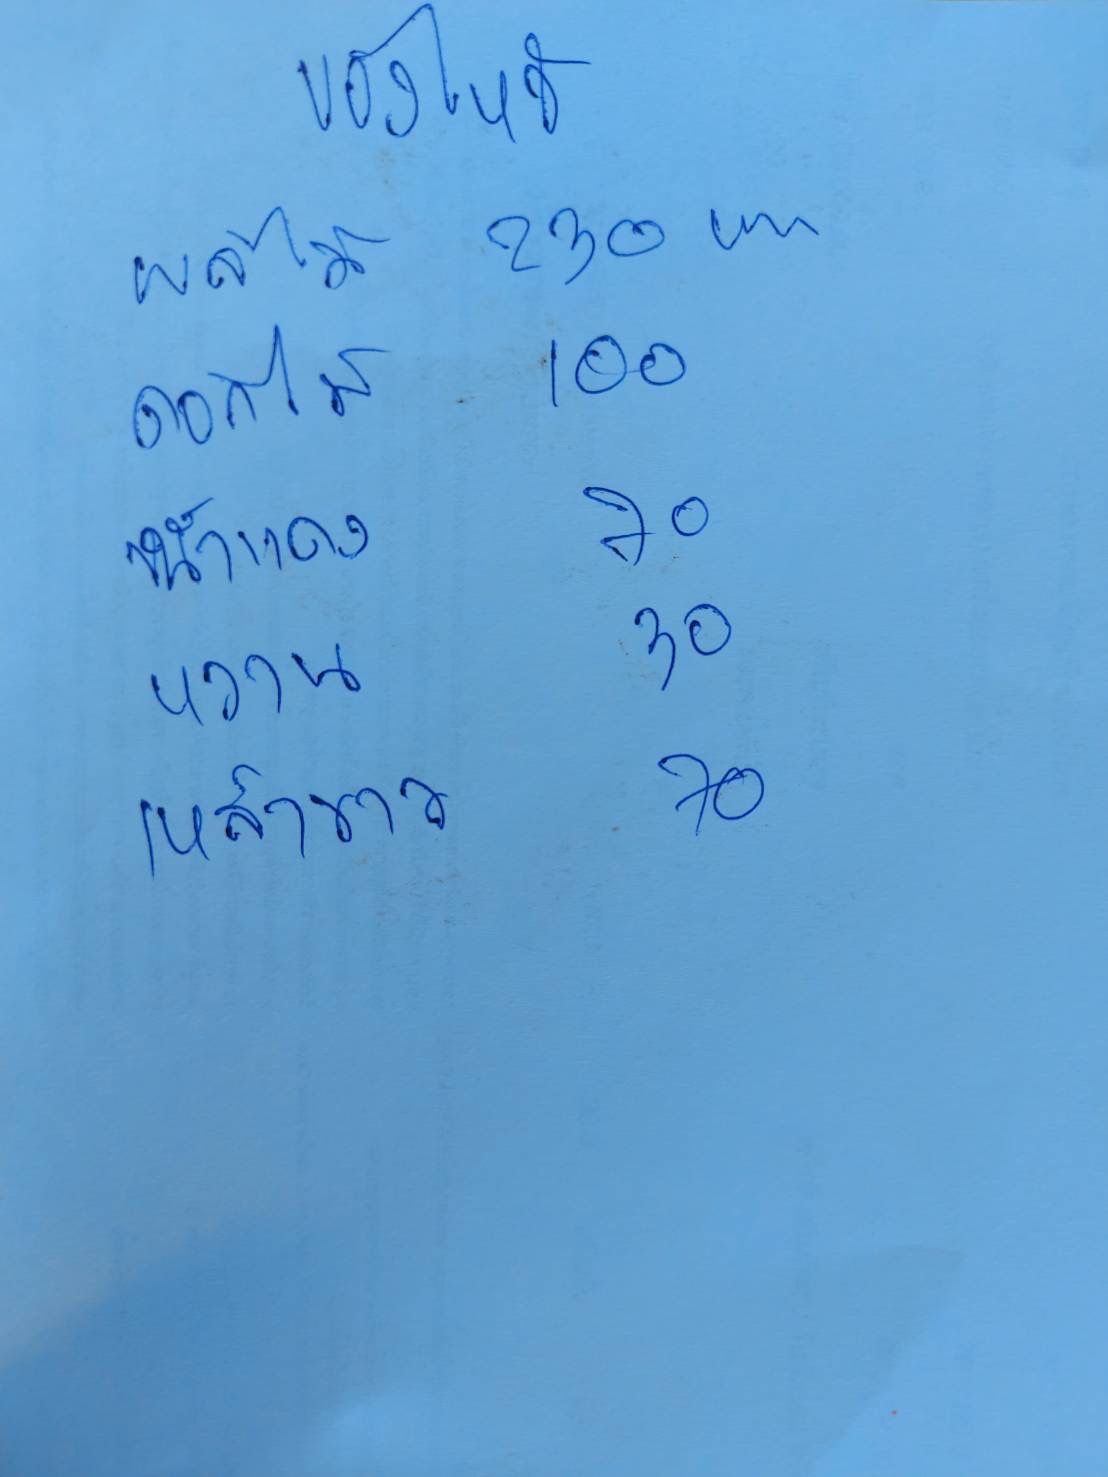 ของไหว้
ผลไม้ 230 บาท
ดอกไม้ 100
น้ำแดง 70
หวาน 30
เหล้าขาว 70